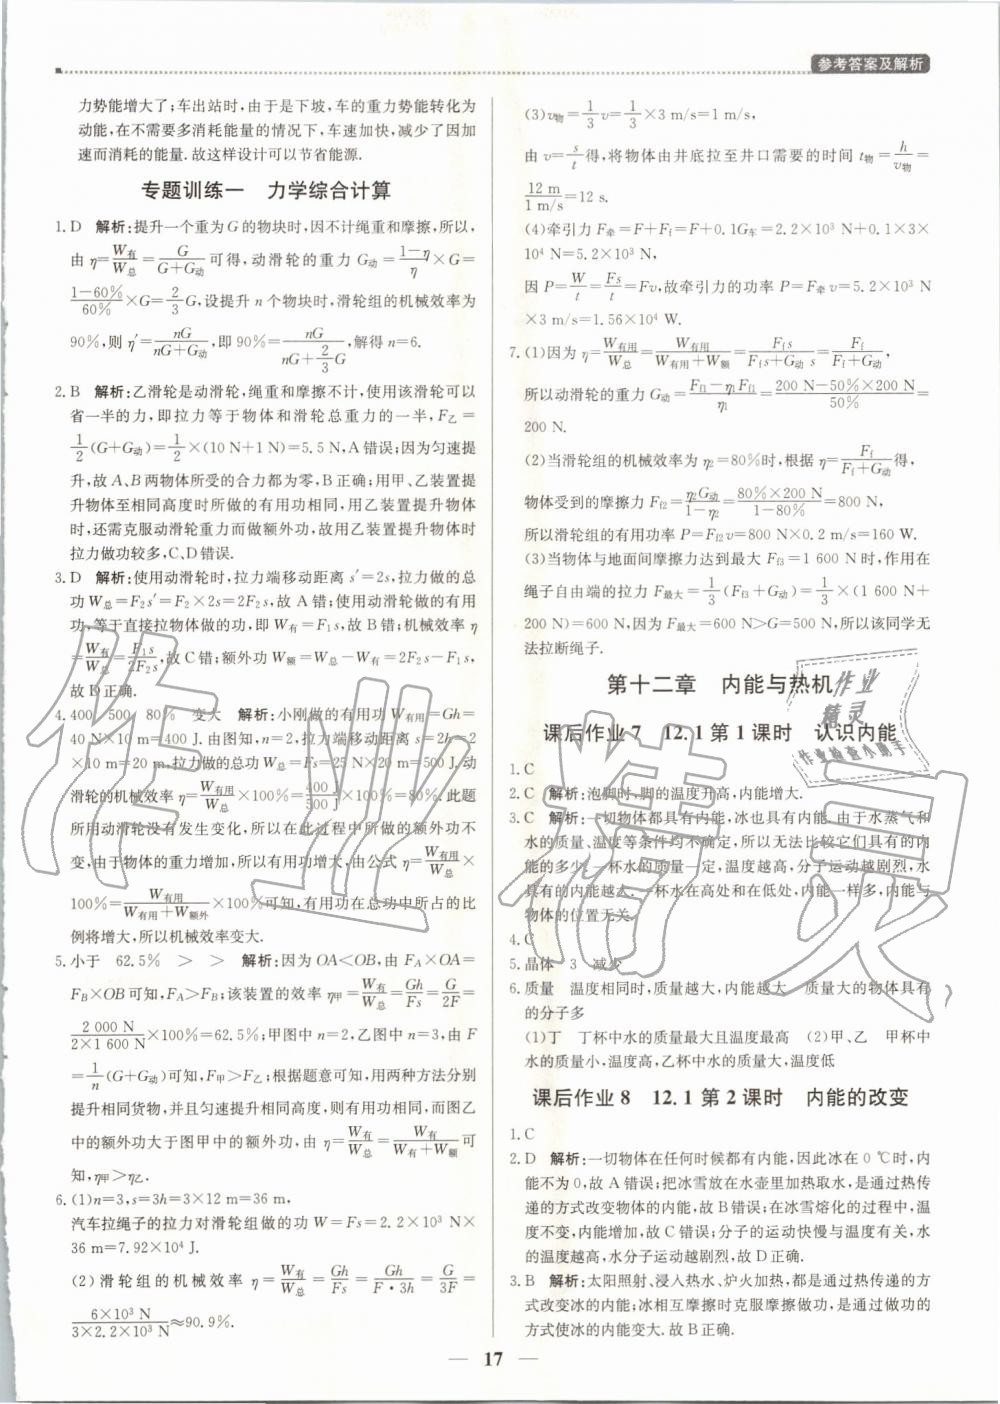 参考答案及解析
力势能增大了;车出站时,由于是下坡,车的重力势能转化为
动能,在不需要多消耗能量的情况下,车速加快,减少了因加
速而消耗的能量.故这样设计可以节省能源.
专题训练一 力学综合计算
1. D 解析:提升一个重为G的物块时,因不计绳重和摩擦,所以,
由η=W有/W总=G/(G+G动)可得,动滑轮的重力G动=(1-η)/η×G=
(1-60%)/60%×G=2/3G,设提升n个物块时,滑轮组的机械效率为
90%,则η′=nG/(nG+G动),即90%=nG/(nG+2/3G),解得n=6.
2. B 解析:乙滑轮是动滑轮,绳重和摩擦不计,使用该滑轮可以
省一半的力,即拉力等于物体和滑轮总重力的一半,F乙=
1/2(G+G动)=1/2×(10 N+1 N)=5.5 N,A错误;因为匀速提
升,故A、B两物体所受的合力都为零,B正确;用甲、乙装置提
升物体至相同高度时所做的有用功相同,用乙装置提升物体
时,还需克服动滑轮重力而做额外功,故用乙装置提升物体时
拉力做功较多,C、D错误.
3. D 解析:使用动滑轮时,拉力端移动距离s′=2s,拉力做的总
功W总=F2s′=F2×2s=2F2s,故A错;使用动滑轮做的有用
功,等于直接拉物体做的功,即W有=F1s,故B错;机械效率η
=W有/W总=F1s/2F2s,故C错;额外功W额=W总-W有=2F2s-F1s,
故D正确.
4. 400 500 80% 变大 解析:小刚做的有用功W有用=Gh=
40 N×10 m=400 J.由图知,n=2,拉力端移动距离s=2h=2
×10 m=20 m,拉力做的总功W总=Fs=25 N×20 m=500 J.动
滑轮的机械效率η=W有用/W总×100%=400 J/500 J×100%=80%.此题
所用动滑轮没有发生变化,所以在此过程中所做的额外功不
变,由于物体的重力增加,所以有用功增大,由公式η=W有用/W总×
100%=W有用/(W有用+W额外)×100%可知,有用功在总功中所占的比
例将增大,所以机械效率变大.
5. 小于 62.5% > > 解析:因为OA<OB,由FA×OA=
FB×OB可知,FA>FB;该装置的效率η甲=W有/W总=Gh/Fs=G/2F=
2 000 N/(2×1 600 N)×100%=62.5%;甲图中n=2,乙图中n=3,由F
=1/n(G+G动)可知,F甲>F乙;根据题意可知,用两种方法分别
提升相同货物,并且匀速提升相同高度,则有用功相同,而图乙
中的额外功大于图甲中的额外功,由η=W有/W总=W有/(W有+W额)可
知,η甲>η乙.
6. (1)n=3,s=3h=3×12 m=36 m,
汽车拉绳子的拉力对滑轮组做的功W=Fs=2.2×10³ N×
36 m=7.92×10⁴ J.
(2)滑轮组的机械效率η=W有/W总=Gh/Fs=Gh/(F·3h)=G/3F=
6×10³ N/(3×2.2×10³ N)≈90.9%.
(3)v物=1/3v=1/3×3 m/s=1 m/s,
由v=s/t得,将物体由井底拉至井口需要的时间t物=h/v物=
12 m/(1 m/s)=12 s.
(4)牵引力F牵=F+Ff=F+0.1G车=2.2×10³ N+0.1×3×
10⁴ N=5.2×10³ N,
因P=W/t=Fs/t=Fv,故牵引力的功率P=F牵v=5.2×10³ N
×3 m/s=1.56×10⁴ W.
7. (1)因为η=W有用/W总=W有用/(W有用+W额)=Ff s/(Ff s+G动 s)=Ff/(Ff+G动),
所以动滑轮的重力G动=(Ff1-η1Ff1)/η1=(200 N-50%×200 N)/50%=
200 N.
(2)当滑轮组的机械效率为η2=80%时,根据η=Ff/(Ff+G动)得,
物体受到的摩擦力Ff2=η2G动/(1-η2)=80%×200 N/(1-80%)=800 N,
所以滑轮组的有用功率P=Ff2v=800 N×0.2 m/s=160 W.
(3)当物体与地面间摩擦力达到最大Ff3=1 600 N时,作用在
绳子自由端的拉力F最大=1/3(Ff3+G动)=1/3×(1 600 N+
200 N)=600 N,因为F最大=600 N>G=500 N,所以该同学无
法拉断绳子.
第十二章 内能与热机
课后作业7 12.1第1课时 认识内能
1. C
2. C 解析:泡脚时,脚的温度升高,内能增大.
3. C 解析:一切物体都具有内能,冰也具有内能.由于水蒸气和
水的质量、温度等条件均不确定,所以无法比较它们具有的内
能的多少.一杯水的质量一定,温度越高,分子运动越剧烈,水
具有的内能越大.一杯水在高处和在低处,内能一样多,内能与
物体的位置无关.
4. C
5. 晶体 3 减少
6. 质量 温度相同时,质量越大,内能越大 质量大的物体具有
的分子多
(1)丁 丁杯中水的质量最大且温度最高 (2)甲、乙 甲杯中
水的质量小,温度高,乙杯中水的质量大,温度低
课后作业8 12.1第2课时 内能的改变
1. C
2. D 解析:一切物体在任何时候都有内能,因此冰在0 ℃时,内
能不为0,故A错误;把冰雪放在水壶里加热取水,是通过热传
递的方式改变物体的内能,故B错误;在冰雪熔化的过程中,温
度不变,内能增加,故C错误;分子的运动快慢与温度有关,水
的温度越高,水分子运动越剧烈,故D正确.
3. B 解析:太阳照射、浸入热水、炉火加热,都是通过热传递的方
式改变冰的内能;冰相互摩擦时克服摩擦做功,是通过做功的
方式使冰的内能变大.故B正确.
17
作业精灵
作业精灵
作业检查小助手